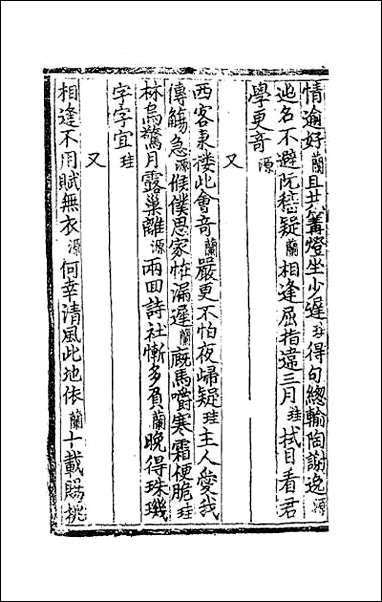 情逾好蘭且共篝燈坐少遲珪得句總輸陶謝逸源
逃名不避阮嵇疑蘭相逢屈指遠三月珪拭目看君
學更奇源
又
西客東樓此會奇蘭嚴更不怕夜歸疑珪主人愛我
傳觴急源候僕思家怪漏遲蘭廐馬嚼寒霜便脆珪
林烏驚月露巢離源兩田詩社慚多負蘭晚得珠璣
字字宜珪
又
相逢不用賦無衣源何幸清風此地依蘭十載賜桃